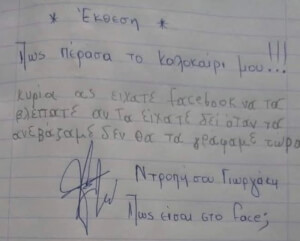 * Έκθεση *
Πως πέρασα το καλοκαίρι μου!!!
κυρία ας είχατε facebook να τα
βλέπατε αν τα είχατε δει όταν τα
ανεβάζαμε δεν θα τα γράφαμε τώρα
Ντροπή σου Γιωργάκη
Πως είσαι στο face;